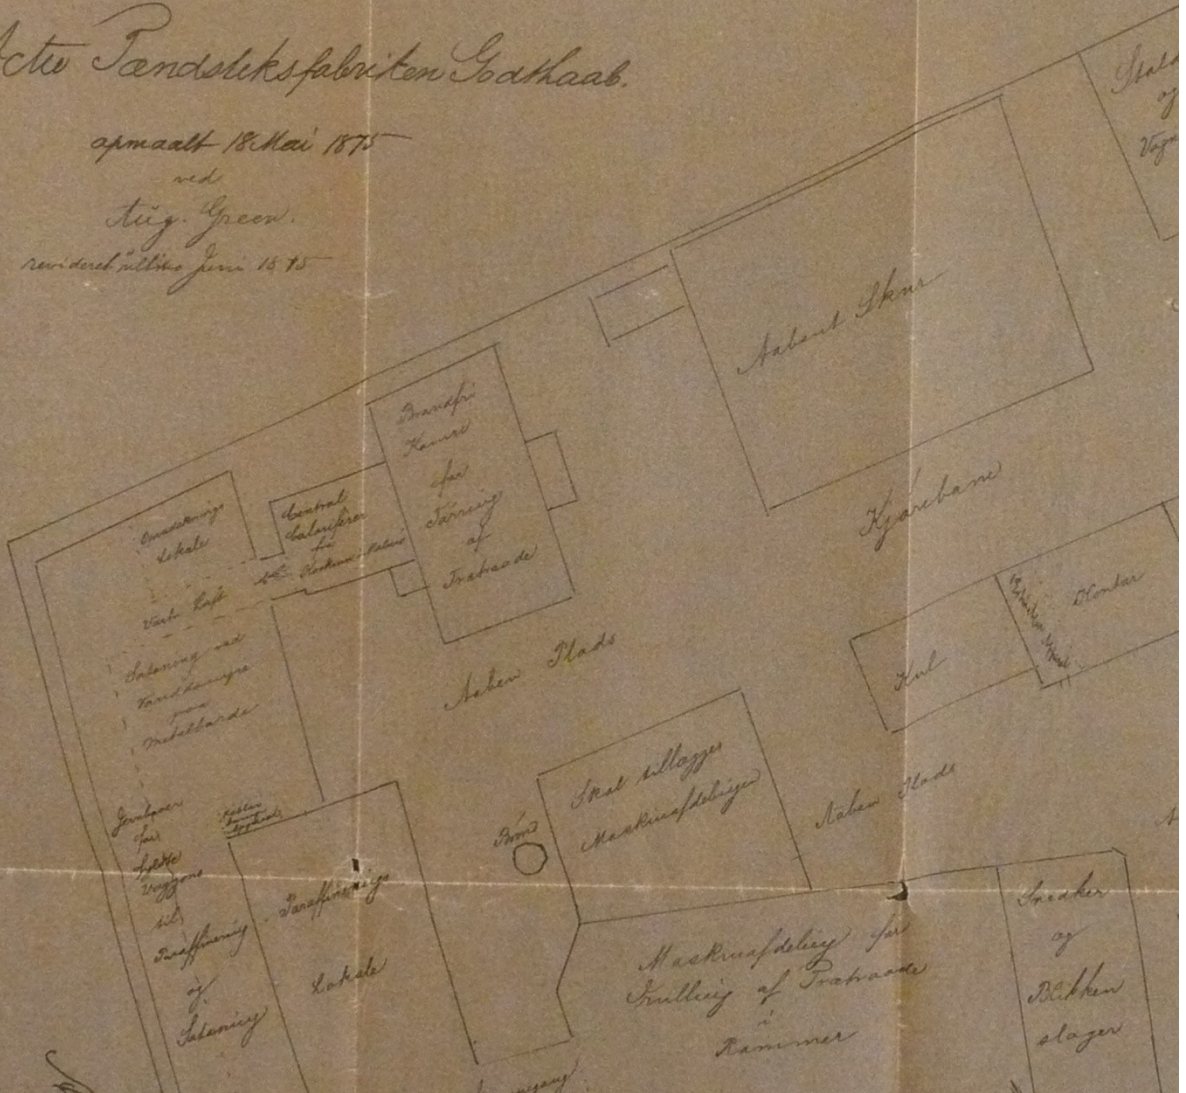 Actie Tændstiksfabriken Godthaab.
opmaalt 18 Mai 1875
ved
Aug. Green.
revideret ultimo Juni 1875
Stald
og
Vogn
Aabent Skur
Brandfri
for
Tørring
af
Træraade
Kjørebane
Central
Calorifére
for
Lokale
Varm Luft
Satsning ved
paa
Aaben Plads
Kul
Kontor
Skal tillægges
Maskinafdelingen
Aaben Plads
Brønd
Jernbaner
for
fyldte
Vogne
til
Paraffinering
og
Satsning
Paraffinerings
Lokale
Maskinafdeling for
af Træraade
i
Rammer
Snedker
og
Blikken
slager